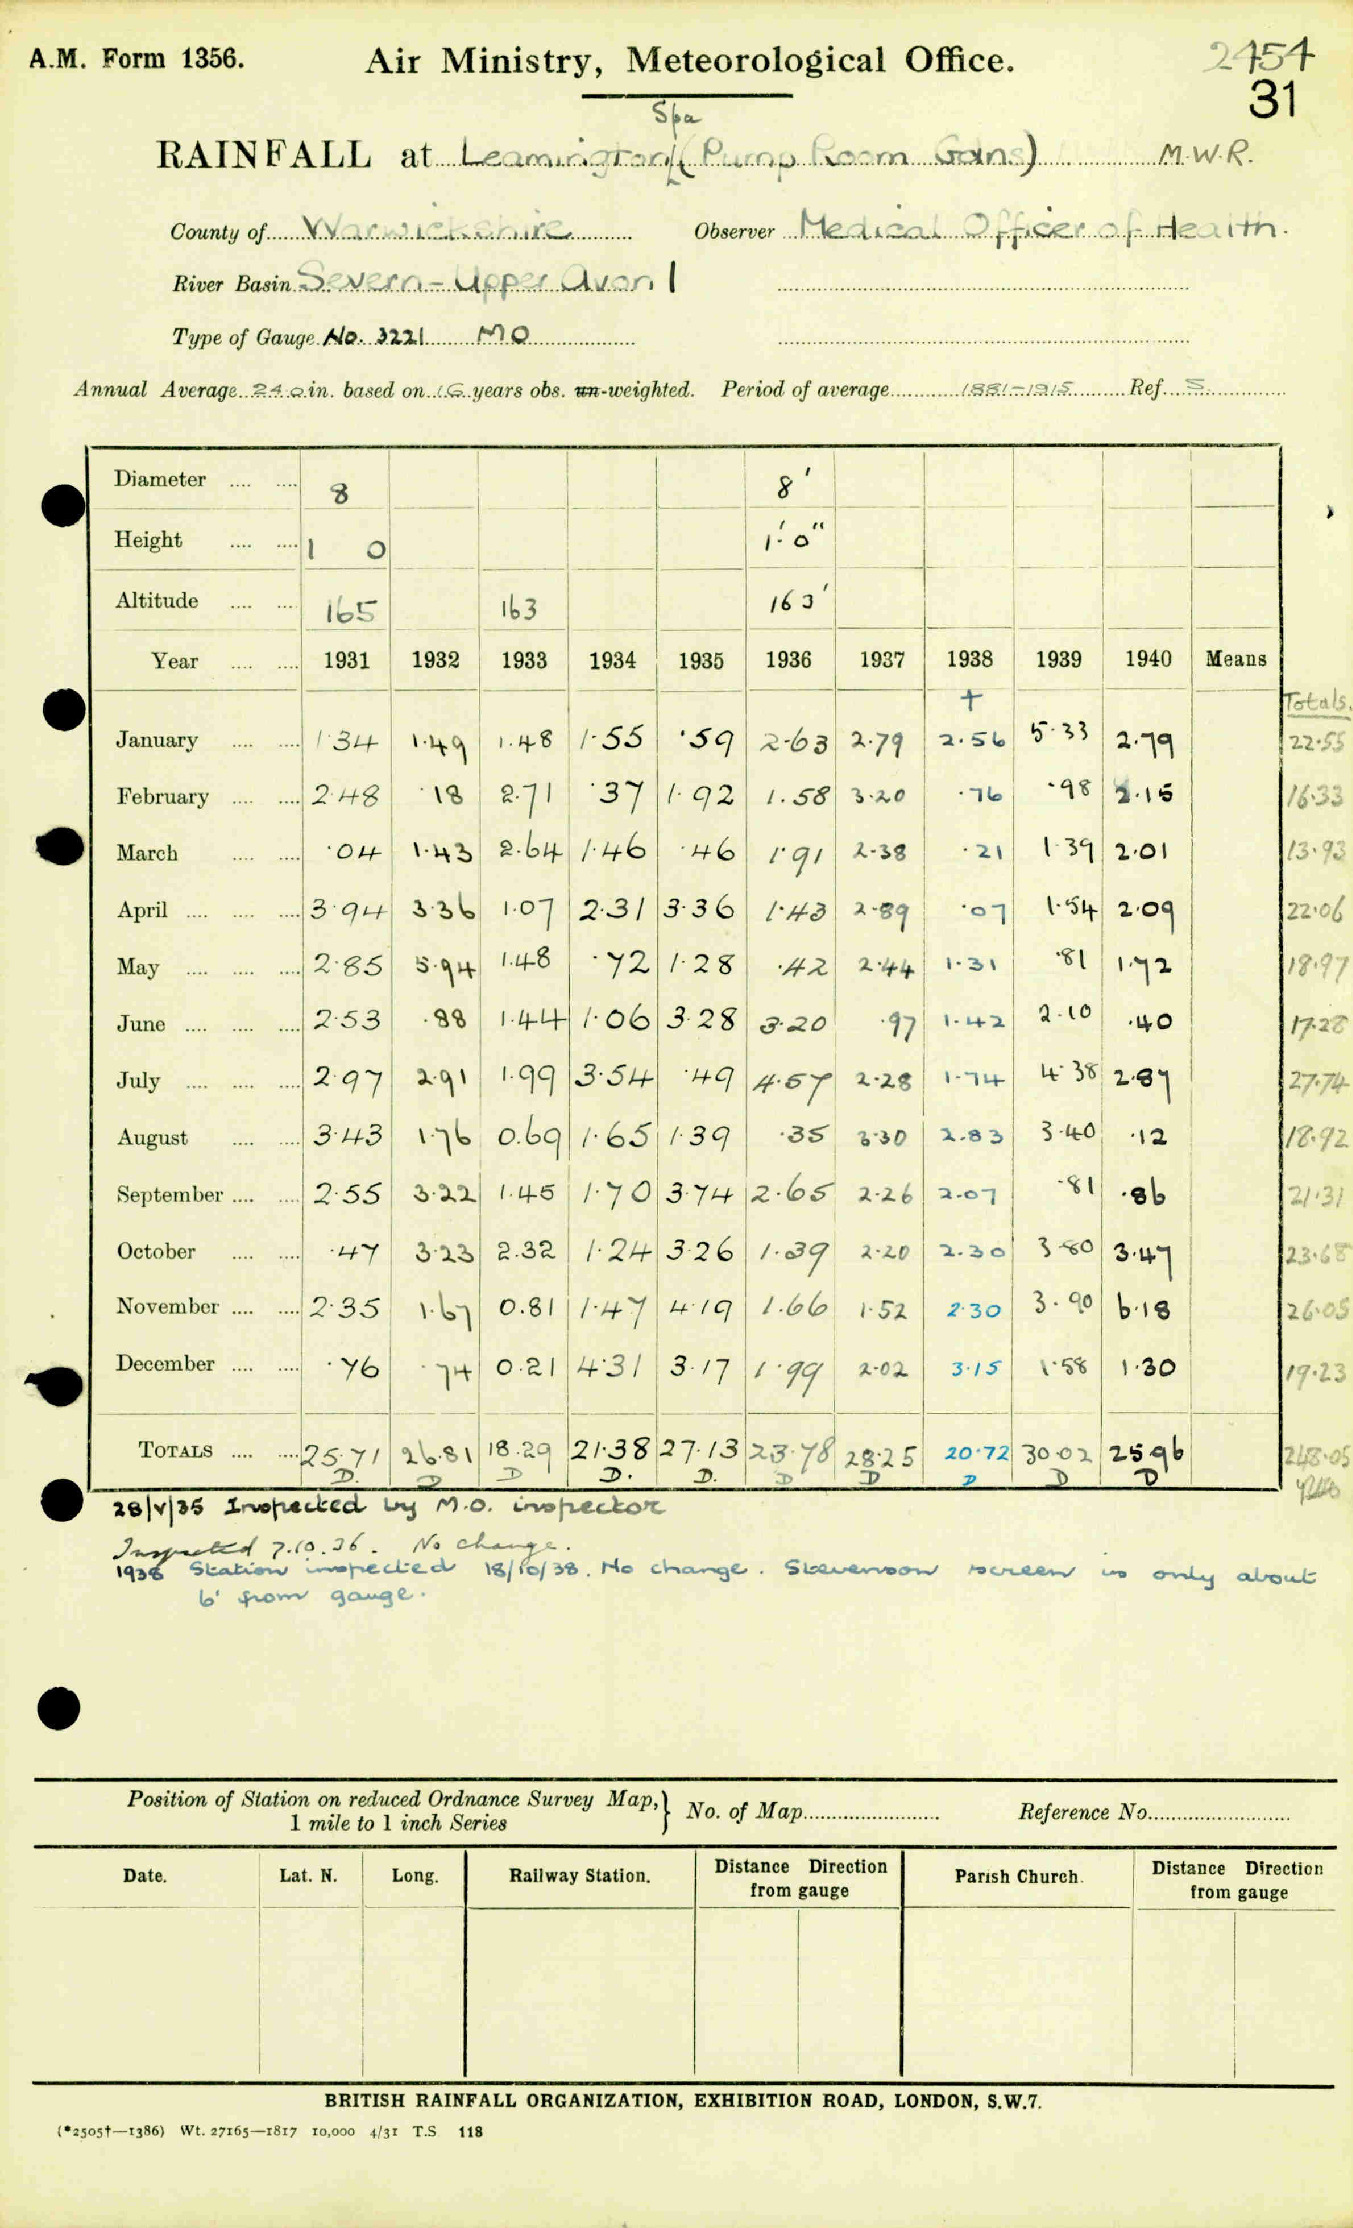 A.M. Form 1356. Air Ministry, Meteorological Office. 2454
31
Spa
RAINFALL at Leamington (Pump Room Gdns) M.W.R.
County of Warwickshire Observer Medical Officer of Health.
River Basin Severn - Upper Avon 1
Type of Gauge No. 3221 MO
Annual Average 24.0 in. based on 16 years obs. un-weighted. Period of average 1881-1915 Ref. S.
Diameter .... .... 8 8'
Height .... .... 1 0 1'·0"
Altitude .... .... 165 163 163'
Year .... .... 1931 1932 1933 1934 1935 1936 1937 1938 1939 1940 Means
+ Totals.
January .... .... 1·34 1·49 1·48 1·55 ·59 2·63 2·79 2·56 5·33 2·79 22·55
February .... .... 2·48 ·18 2·71 ·37 1·92 1·58 3·20 ·76 ·98 2·15 16·33
March .... .... ·04 1·43 2·64 1·46 ·46 1·91 2·38 ·21 1·39 2·01 13·93
April .... .... .... 3·94 3·36 1·07 2·31 3·36 1·43 2·89 ·07 1·54 2·09 22·06
May .... .... .... 2·85 5·94 1·48 ·72 1·28 ·42 2·44 1·31 ·81 1·72 18·97
June .... .... .... 2·53 ·88 1·44 1·06 3·28 3·20 ·97 1·42 2·10 ·40 17·28
July .... .... .... 2·97 2·91 1·99 3·54 ·49 4·57 2·28 1·74 4·38 2·87 27·74
August .... .... 3·43 1·76 0·69 1·65 1·39 ·35 3·30 2·83 3·40 ·12 18·92
September .... .... 2·55 3·22 1·45 1·70 3·74 2·65 2·26 2·07 ·81 ·86 21·31
October .... .... ·47 3·23 2·32 1·24 3·26 1·39 2·20 2·30 3·80 3·47 23·68
November .... .... 2·35 1·67 0·81 1·47 4·19 1·66 1·52 2·30 3·90 6·18 26·05
December .... .... ·76 ·74 0·21 4·31 3·17 1·99 2·02 3·15 1·58 1·30 19·23
TOTALS .... .... 25·71 26·81 18·29 21·38 27·13 23·78 28·25 20·72 30·02 25·96 248·05
D. D D D. D. D D D D D
28/V/35 Inspected by M.O. inspector
Inspected 7.10.36. No change.
1938 Station inspected 18/10/38. No change. Stevenson screen is only about
6' from gauge.
Position of Station on reduced Ordnance Survey Map,} No. of Map Reference No.
1 mile to 1 inch Series
Date. Lat. N. Long. Railway Station. Distance Direction from gauge Parish Church. Distance Direction from gauge
BRITISH RAINFALL ORGANIZATION, EXHIBITION ROAD, LONDON, S.W.7.
(*2505†—1386) Wt. 27165—1817 10,000 4/31 T.S 118